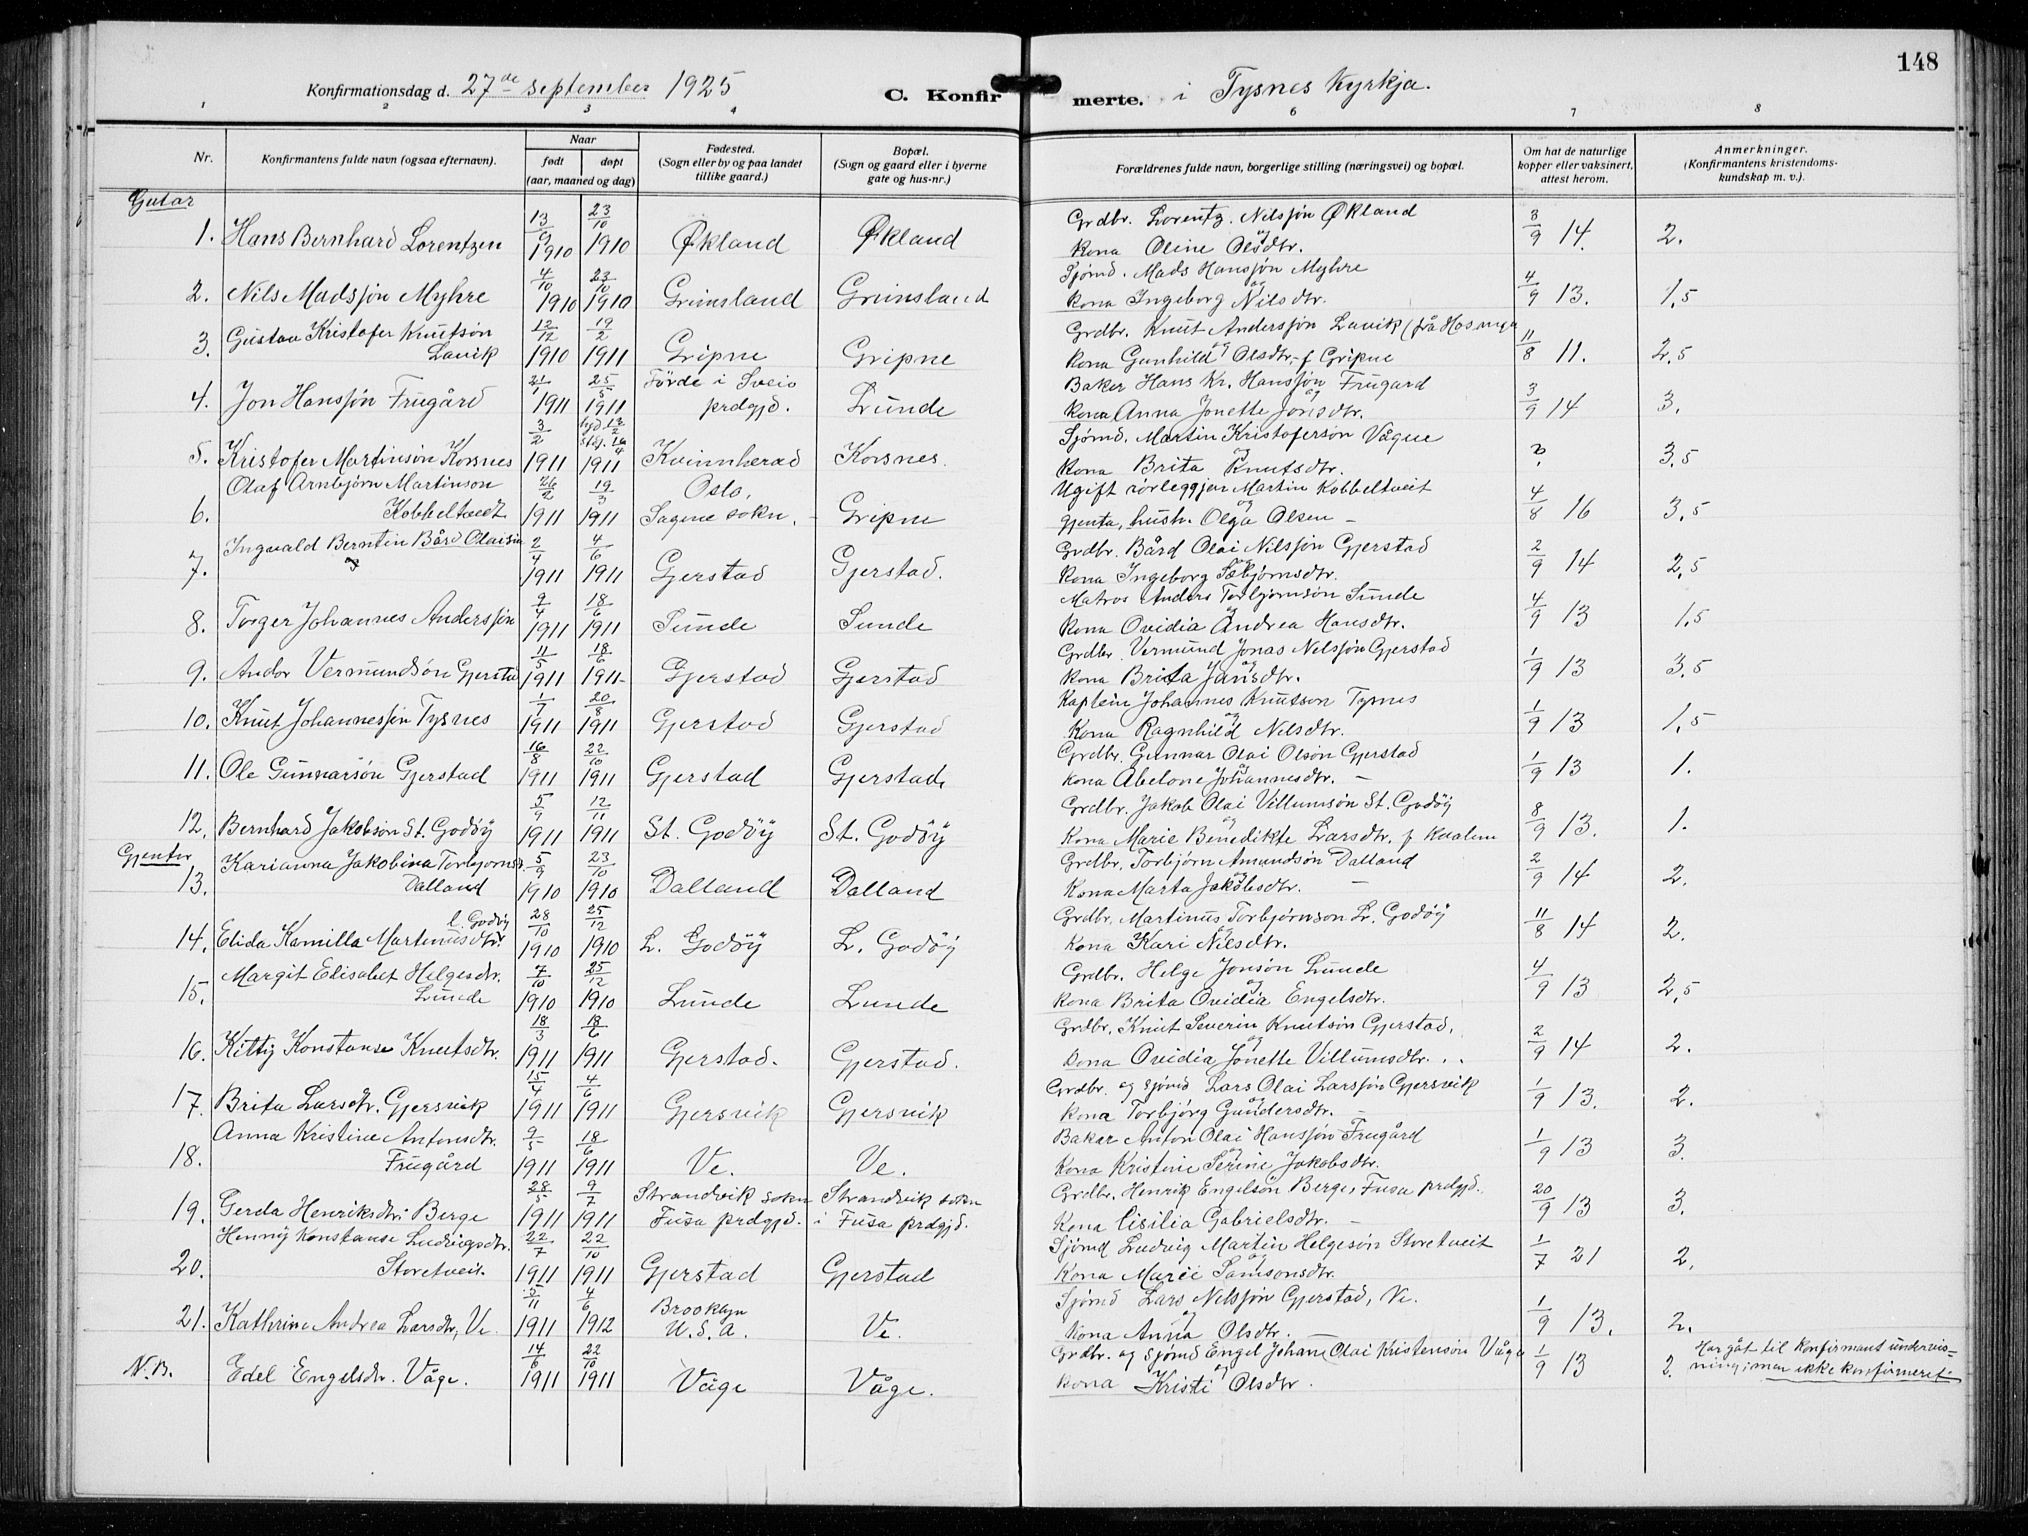 148
Konfirmationsdag d. 27de september 1925 C. Konfirmerte. i Tysnes kyrkja.
1 2 3 4 6 7 8
Nr. Konfirmantens fulde navn (ogsaa efternavn). Naar født døpt (aar, maaned og dag) Fødested. (Sogn eller by og paa landet tillike gaard.) Bopæl. (Sogn og gaard eller i byerne gate og hus-nr.) Forældrenes fulde navn, borgerlige stilling (næringsvei) og bopæl. Om hat de naturlige kopper eller vaksinert, attest herom. Anmerkninger. (Konfirmantens kristendomskundskap m. v.).
Gutar
1. Hans Bernhard Lorentzen 13/9 1910 23/10 1910 Økland Økland Grdbr. Lorentz Nilssøn Økland og kona Oline Olsdtr. 3/9 14. 2.
2. Nils Madssøn Myhre 4/10 1910 23/10 1910 Grimsland Grimsland Sjømd. Mads Hanssøn Myhre og kona Ingeborg Nilsdtr. 4/9 13. 1,5
3. Gustav Kristofer Knutsøn Lavik 12/12 1910 19/2 1911 Gripne Gripne Grdbr. Knut Anderssøn Lavik (frå Hosanger og kona Gunhild Olsdtr. f Gripne 11/8 11. 2,5
4. Jon Hanssøn Frugård 21/1 1911 25/5 1911 Førde i Sveio prdgjd. Lunde Baker Hans Kr. Hanssøn Frugard og kona Anna Jonette Jonsdtr. 3/9 14 3.
5. Kristofer Martinsøn Korsnes 3/2 1911 16/4 1911 Kvinnherad Korsnes. Sjømd. Martin Kristofersøn Vågne og kona Brita Knutsdtr. ? 3,5
6. Olaf Arnbjørn Martinson Kobbeltvedt 26/2 1911 19/3 1911 Oslo, Sagene sokn. Gripne Ugift rørleggjar Martin Kobbeltveit og gjenta, hush. Olga Olsen – 4/8 16 3,5
7. Ingvald Berntin Bård Olaisøn 2/4 1911 4/6 1911 Gjerstad Gjerstad. Grdbr. Bård Olai Nilssøn Gjerstad og kona Ingeborg Sæbjørnsdtr. 2/9 14 2,5
8. Torger Johannes Anderssøn 9/4 1911 18/6 1911 Sunde Sunde Matros Anders Torbjørnsøn Sunde og kona Ovidia Andrea Hansdtr. 4/9 13 1,5
9. Andor Vermundsøn Gjersta 11/5 1911 18/6 1911 Gjerstad Gjerstad Grdbr. Vermund Jonas Nilssøn Gjerstad og kona Brita Jansdtr. 1/9 13 3,5
10. Knut Johannessøn Tysnes 1/7 1911 20/8 1911 Gjerstad Gjerstad Kaptein Johannes Knutson Tysnes og kona Ragnhild Nilsdtr. 1/9 13 1,5
11. Ole Gunnarsøn Gjerstad 16/8 1911 22/10 1911 Gjerstad Gjerstad Grdbr. Gunnar Olai Olsøn Gjerstad og kona Abelone Johannesdtr. – 1/9 13 1.
12. Bernhard Jakobsøn St. Godøy 5/9 1911 12/11 1911 St. Godøy St. Godøy Grdbr. Jakob Olai Villumsøn St. Godøy og kona Marie Benedikte Larsdtr. f Kvalem 8/9 13. 1.
Gjentor
13. Karianna Jakobina Torbjørnsd. Dalland 5/9 1910 23/10 1910 Dalland Dalland Grdbr. Torbjørn Amundsøn Dalland og kona Marta Jakobsdtr. – 2/9 14 2.
14. Elida Kamilla Martinusdtr. l. Godøy 28/10 1910 25/12 1910 L. Godøy L. Godøy Grdbr. Martinus Torbjørnson L. Godøy og kona Kari Nilsdtr. 11/8 14 2.
15. Margit Elisabet Helgesdtr. Lunde 7/10 1910 25/12 1910 Lunde Lunde Grdbr. Helge Jonsøn Lunde og kona Brita Ovidia Engelsdtr. 4/9 13 2,5
16. Kitty Konstanse Knutsdtr. 18/3 1911 18/6 1911 Gjerstad. Gjerstad. Grdbr. Knut Severin Knutsøn Gjerstad, og kona Ovidia Jonette Villumsdtr. 2/9 14 2.
17. Brita Larsdtr. Gjersvik 15/4 1911 4/6 1911 Gjersvik Gjersvik Grdbr. og sjømd Lars Olai Larssøn Gjersvik og kona Torbjørg Gundersdtr. – 1/9 13. 2.
18. Anna Kristine Antonsdtr. Frugård 9/5 1911 18/6 1911 Ve. Ve. Bakar Anton Olai Hanssøn Frugård og kona Kristine Serine Jakobsdtr. 1/9 13 3.
19. Gerda Henriksdtr. Berge 28/5 1911 9/7 1911 Strandvik sokn Fusa prdgjd. Strandvik sokn i Fusa prdgjd. Grdbr. Henrik Engelsøn Berge, Fusa prdgjd. Kona Cisilia Gabrielsdtr. – 20/9 13 3.
20. Henny Konstanse Ludvigsdtr. Storetveit. 22/7 1911 22/10 1911 Gjerstad Gjerstad Sjømd Ludvig Martin Helgesøn Storetveit og kona Marie Samsonsdtr. 1/7 21 2.
21. Kathrine Andrea Larsdtr, Ve. 5/11 1911 4/6 1912 Brooklyn U.S.A. Ve. Sjømd Lars Nilssøn Gjerstad, Ve. og kona Anna Olsdtr. 1/9 13. 2.
N.B. Edel Engelsdtr. Våge. 14/6 1911 22/10 1911 Våge Våge. Grdbr. og sjømd Engel Johan Olai Kristensøn Våge og kona Kristi Olsdtr. 1/9 13 2. Har gåt til konfirmantundervisning; men ikke konfirmeret.